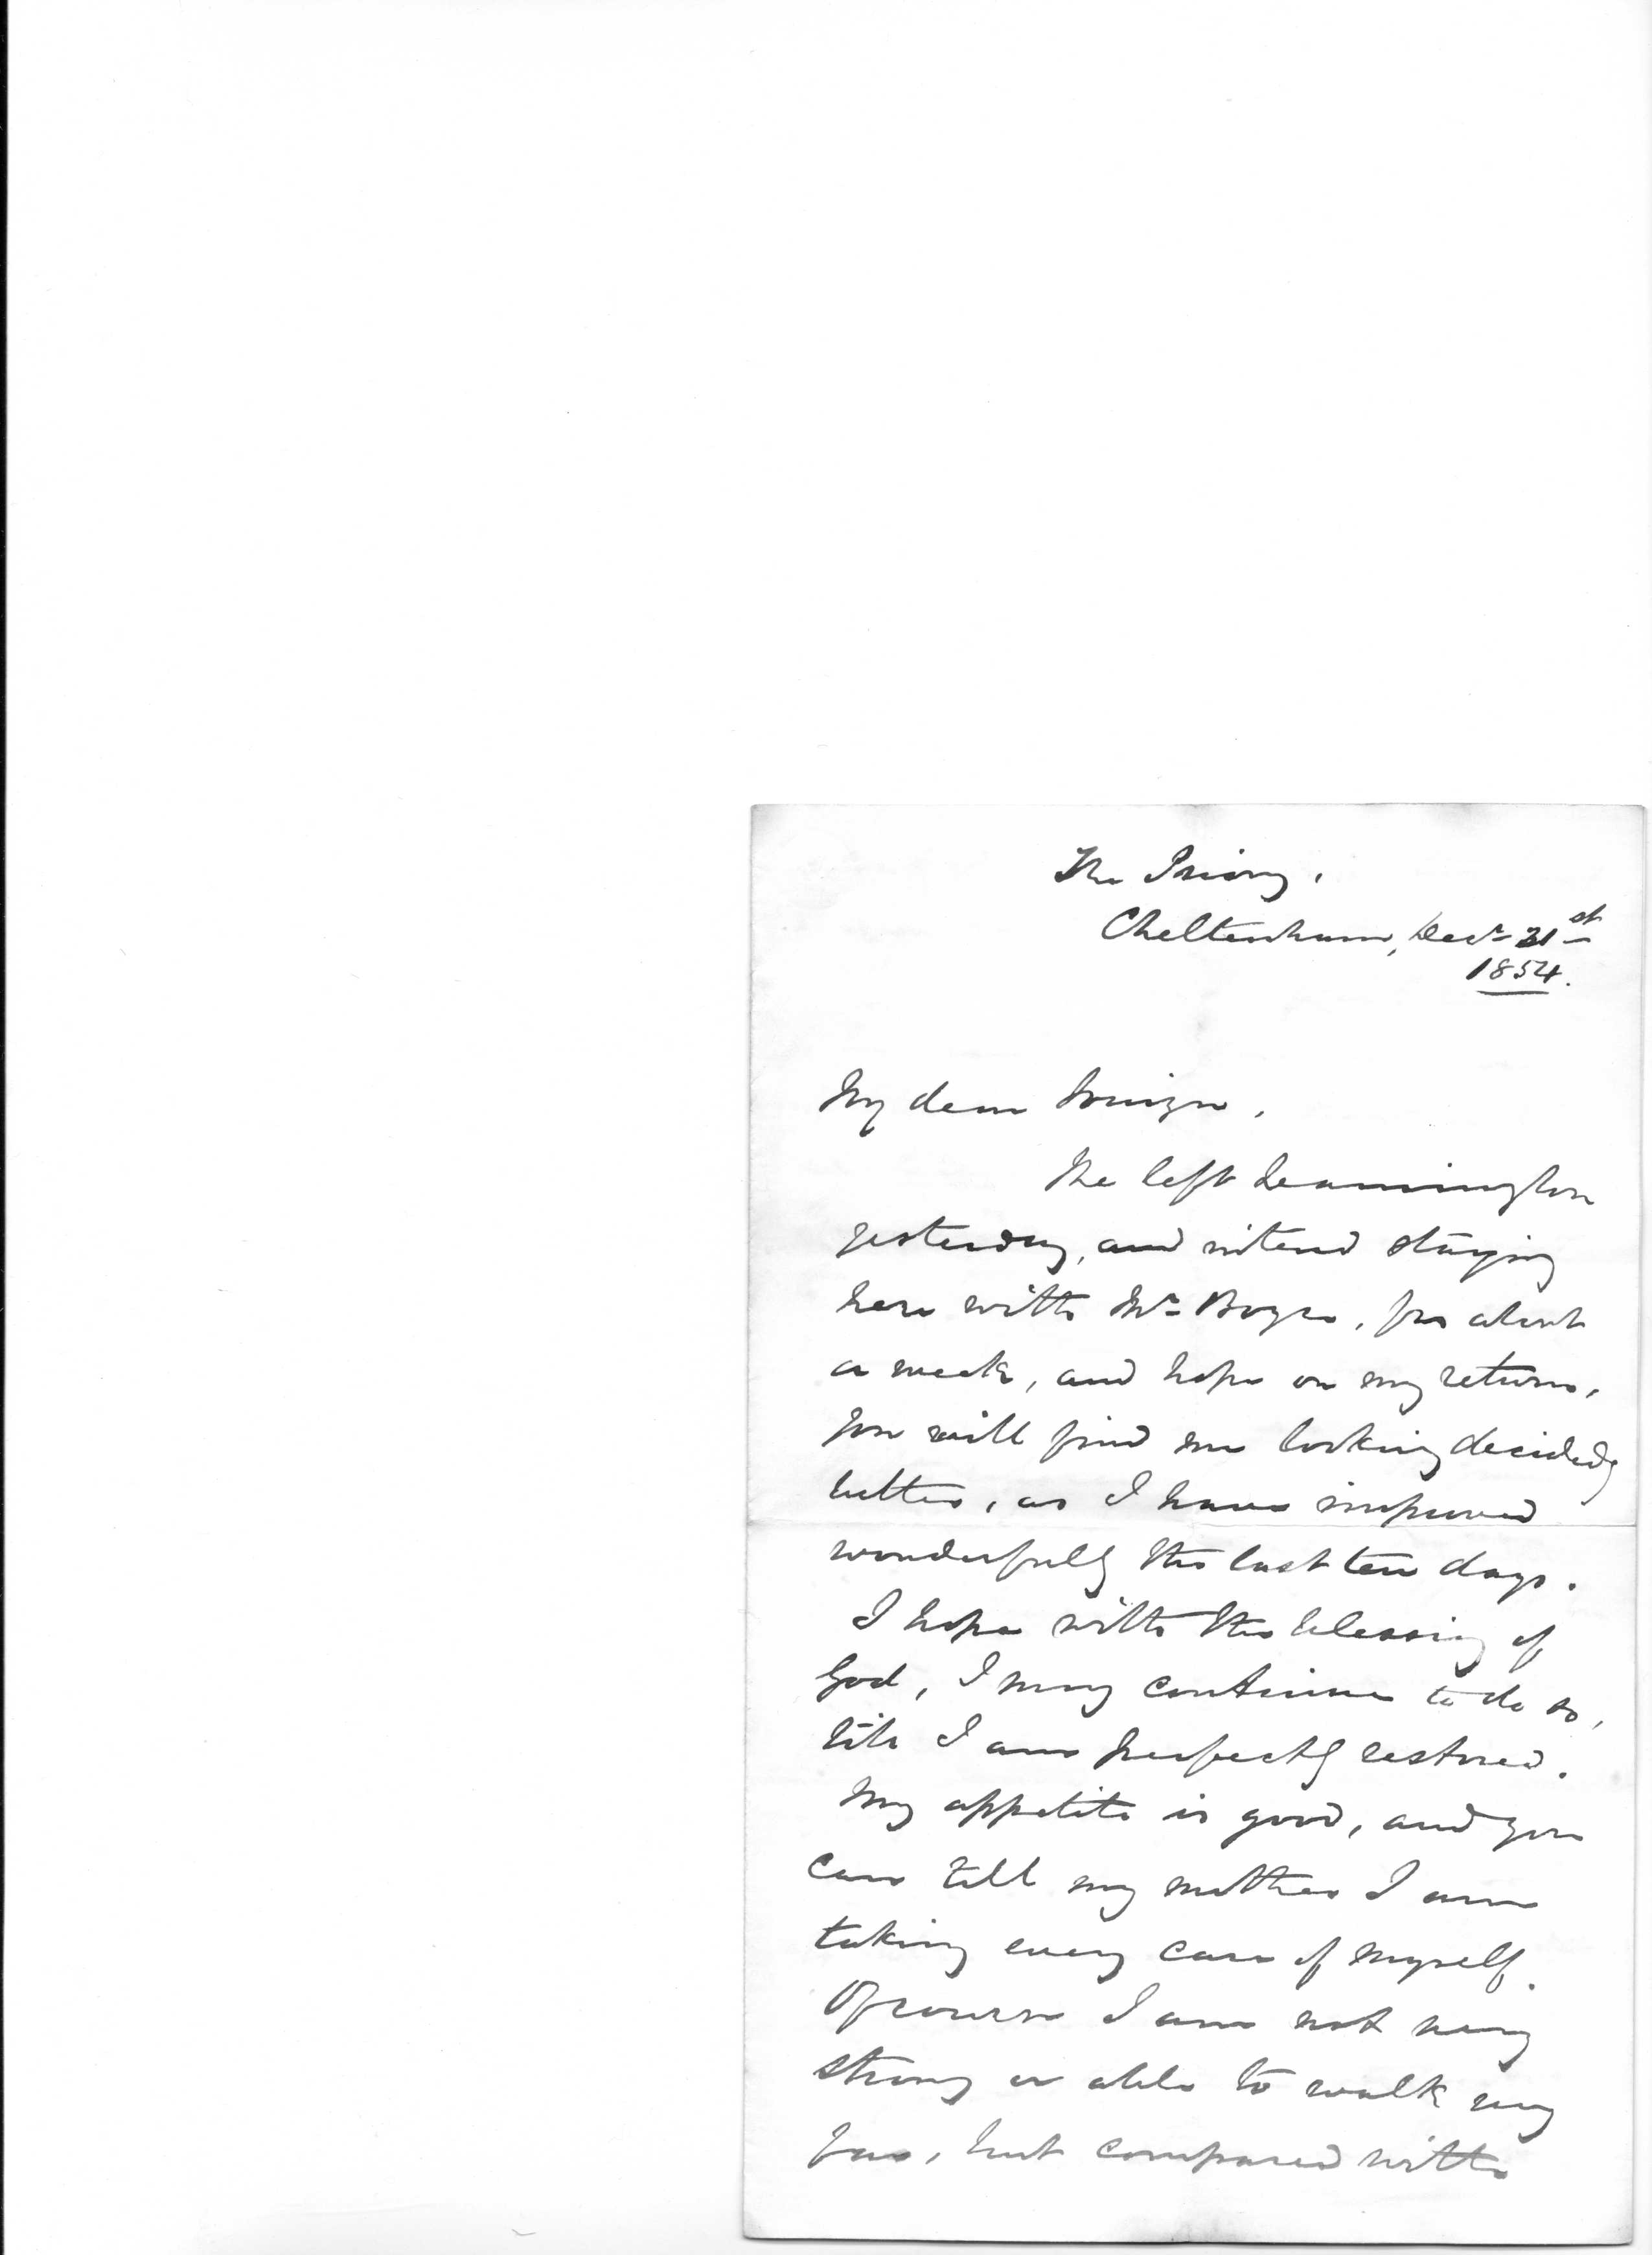 The Priory,
Cheltenham, Decr 31st
1854.
My dear Louisa,
We left Leamington
yesterday, and intend staying
here with Mr Boyce, for about
a week, and hope on my return,
you will find me looking decidedly
better, as I have improved
wonderfully the last ten days.
I hope with the blessing of
God, I may continue to do so,
till I am perfectly restored.
My appetite is good, and you
can tell my mother I am
taking every care of myself.
Of course I am not very
strong or able to walk very
far, but compared with